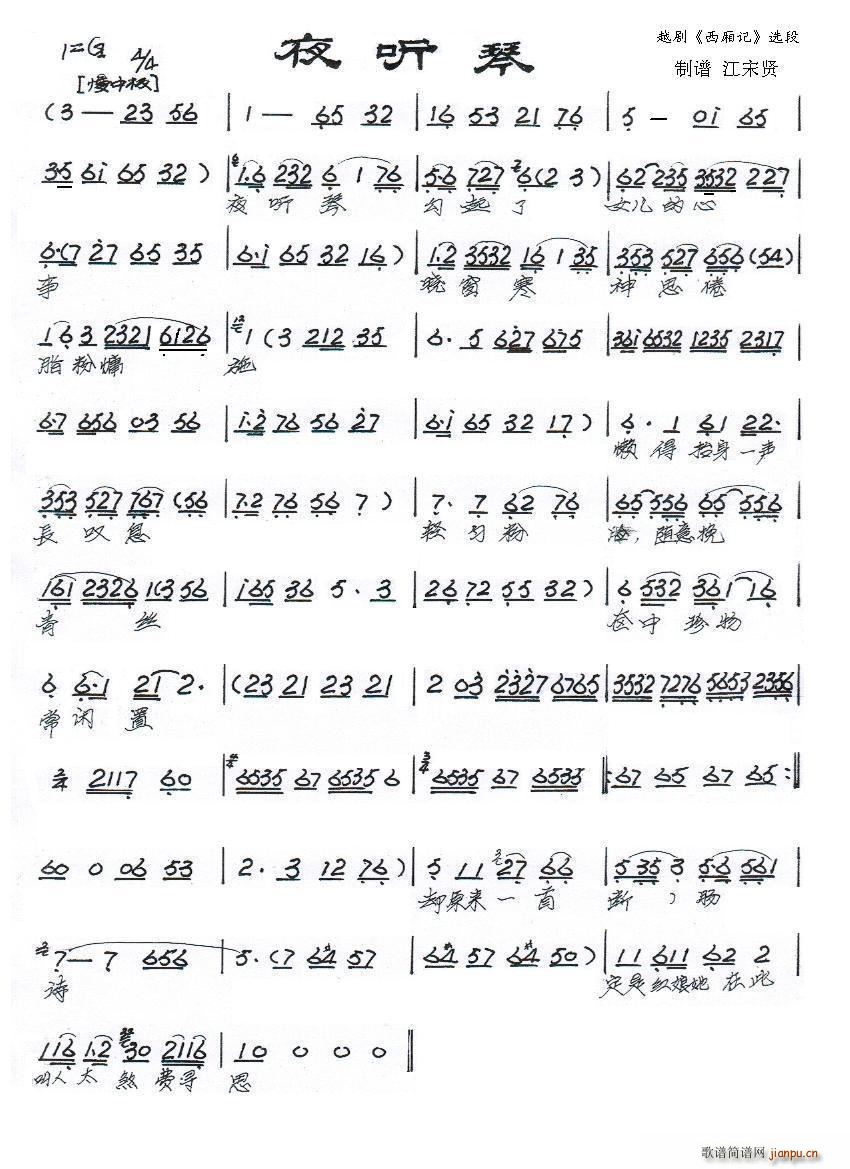 夜听琴
越剧《西厢记》选段
制谱 江宋贤
1=G 4/4
[慢中板]
(3 — 23 56 | 1 — 65 32 | 16 53 21 76 | 5 — 0i 65 |
35 6i 65 32 ) | 1·6 232 6 1 76 | 5·6 727 6(2 3) | 62 235 3532 227 |
夜听琴 勾起了 女儿的心
6·(7 27 65 35 | 6·i 65 32 16 ) | 1·2 3532 16 1 35 | 353 527 656 (54) |
事 晓窗寒 神思倦
1 6 3 2321 6126 | 1 (3 212 35 | 6· 5 627 675 | 36i 6532 1235 2317 |
脂粉慵 施
6·7 656 03 56 | i·2 76 56 27 | 6·i 65 32 17 ) | 6· 1 61 22· |
懒得抬身一声
353 527 767 (56 | 7·2 76 56 7 ) | 7· 7 62 76 | 65 556 65 556 |
長叹息 轻匀粉 随意挽
161 2326 1(3 56 | i65 36 5· 3 | 26 72 55 32 ) | 6 532 361 116 |
青丝 奁中珍物
6 6·1 21 2· | (23 21 23 21 | 2 03 2327 6765 | 3532 7276 5653 2356 |
常闲置
2117 60 | 6535 67 6535 6 | 6535 67 6535 |: 67 65 67 65 :|
60 0 06 53 | 2· 3 12 76 ) | 5 11 27 66 | 5 35 3 5·6 561 |
却原来一首 断 肠
7 — 7 656 | 5·(7 64 57 | 64 57 64 50 ) | 11 611 62 2 |
诗 定是红娘她在此
116 1·2 30 2116 | 10 0 0 0 ||
叫人太煞费寻思
歌谱简谱网 jianpu.cn